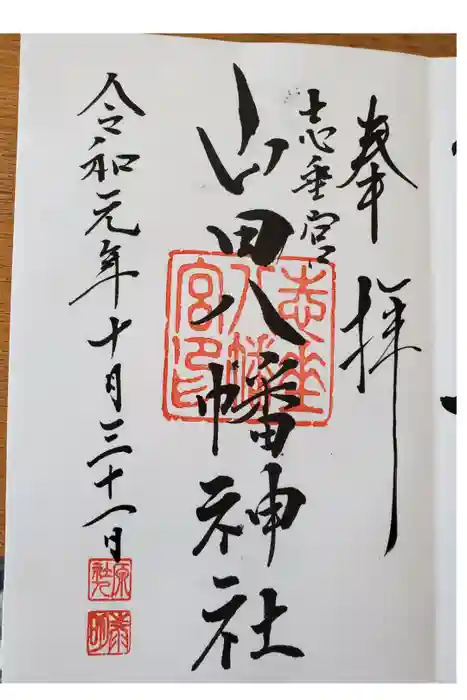 奉拝
志垂宮
山田八幡神社
志垂
八幡
宮印
令和元年十月三十一日